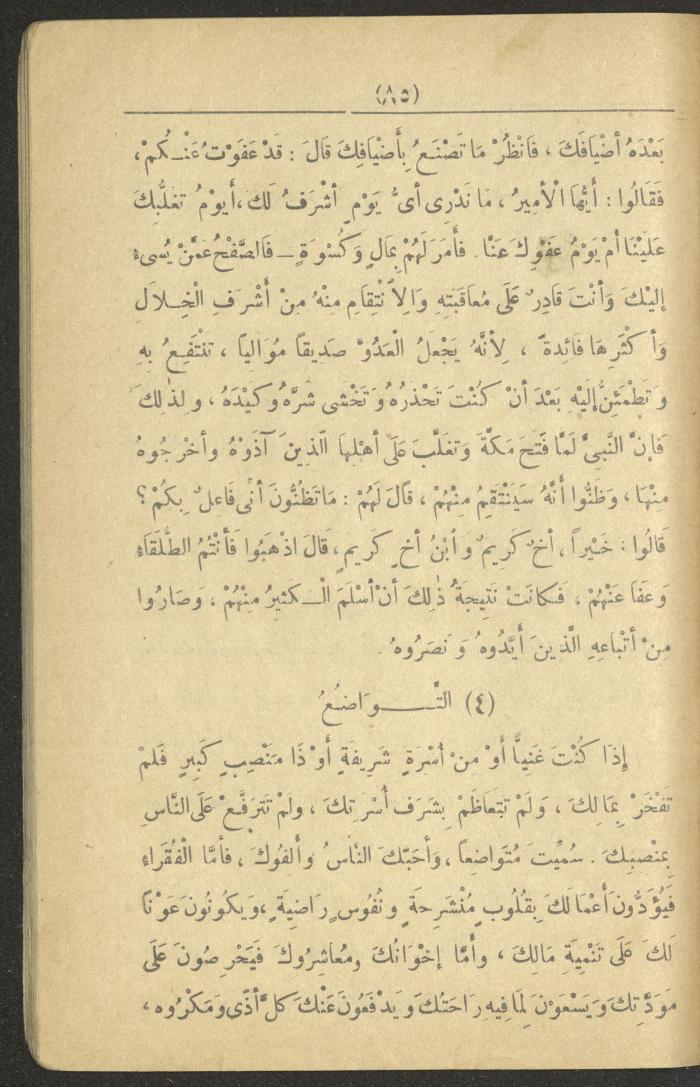 (٨٥)
بَعْدَهُ أضْيَافَكَ ، فَانْظُرْ مَا تَصْنَعُ بِأَضْيَافِكَ قَالَ : قَدْ عَفَوْتُ عَنْكُمْ،
فَقَالُوا : أَيُّهَا الْأَمِيرُ ، مَا نَدْرِى أىُّ يَوْمٍ أَشْرَفُ لَكَ ،أَيوْمُ تَغَلُّبِكَ
عَلَيْنَا أمْ يَوْمُ عَفْوِكَ عَنَّا . فَأَمَرَ لَهُمْ بِمَالٍ وَكُسْوَةٍ ــ فَالصَّفْحُ عَمَّنْ يُسِىءُ
إليْكَ وَأَنْتَ قَادِرٌ عَلَى مُعَاقَبَتِهِ وَالِانْتِقَامِ مِنْهُ مِنْ أَشْرَفِ الْخِلَالِ
وَأكْثَرِهَا فَائِدَةً ، لِأَنَّهُ يَجْعَلُ الْعَدُوَّ صَدِيقاً مُوَالياً ، تنْتَفِعُ بِهِ
وَتَطْمَئِنُّ إِلَيْهِ بَعْدَ أنْ كُنْتَ تَحْذَرُهُ وَتَخْشى شَرَّهُ وَكيْدَهُ ، ولِذٰلِكَ
فَإنَّ النَّبِىَّ لَمَّا فَتَحَ مَكَّةَ وَتَغَلَّبَ عَلَى أهْلِهَا الّذِينَ آذَوْهُ وأخْرَجُوهُ
مِنْهَا ، وَظَنُّوا أَنَّهُ سَيَنْتَقِمُ مِنْهُمْ ، قَالَ لَهُمْ : مَا تَظُنُّونَ أَنِّى فَاعِلٌ بِكُمْ ؟
قَالُوا : خَيْراً ، أخٌ كَرِيمٌ وابْنُ أخٍ كَرِيمٍ ، قَالَ اذْهَبُوا فَأَنْتُمُ الطُّلَقَاءُ
وَعَفَا عَنْهُمْ ، فَكانَتْ نَتِيجَةُ ذٰلِكَ أنْ أسْلَمَ الْكَثِيرُ مِنْهُمْ ، وَصَارُوا
مِنْ أتْبَاعِهِ الَّذِينَ أَيَّدُوهُ وَنَصَرُوهُ .
(٤) التَّـــوَاضُعُ
إِذَا كُنْتَ غَنِيًّا أَوْ مِنْ أُسْرَةٍ شَرِيفَةٍ أَوْ ذَا مَنْصِبٍ كَبِيرٍ فَلَمْ
تَفْخَرْ بِمَالِكَ ، وَلَمْ تَتَعَاظَمْ بِشَرَفِ أُسْرَتِكَ ، ولَمْ تَتَرَفَّعْ عَلَى النَّاسِ
بِمَنْصِبِكَ . سُمِّيتَ مُتَوَاضِعاً ، وَأَحَبَّكَ النَّاسُ وأَلِفُوكَ ، فأمَّا الْفُقَرَاءُ
فَيُؤَدُّونَ أَعْمَالَكَ بِقُلُوبٍ مُنْشَرِحَةٍ ونُفُوسٍ رَاضِيَةٍ ، وَيكُونُونَ عَوْناً
لَكَ عَلَى تَنْمِيَةِ مَالِكَ ، وأَمَّا إخْوَانُكَ ومُعَاشِرُوكَ فَيَحْرِصُونَ عَلَى
مَوَدَّتِكَ وَيَسْعَوْنَ لِمَا فِيهِ رَاحَتُكَ وَيَدْفَعُونَ عَنْكَ كُلَّ أَذًى وَمَكْرُوهٍ ،